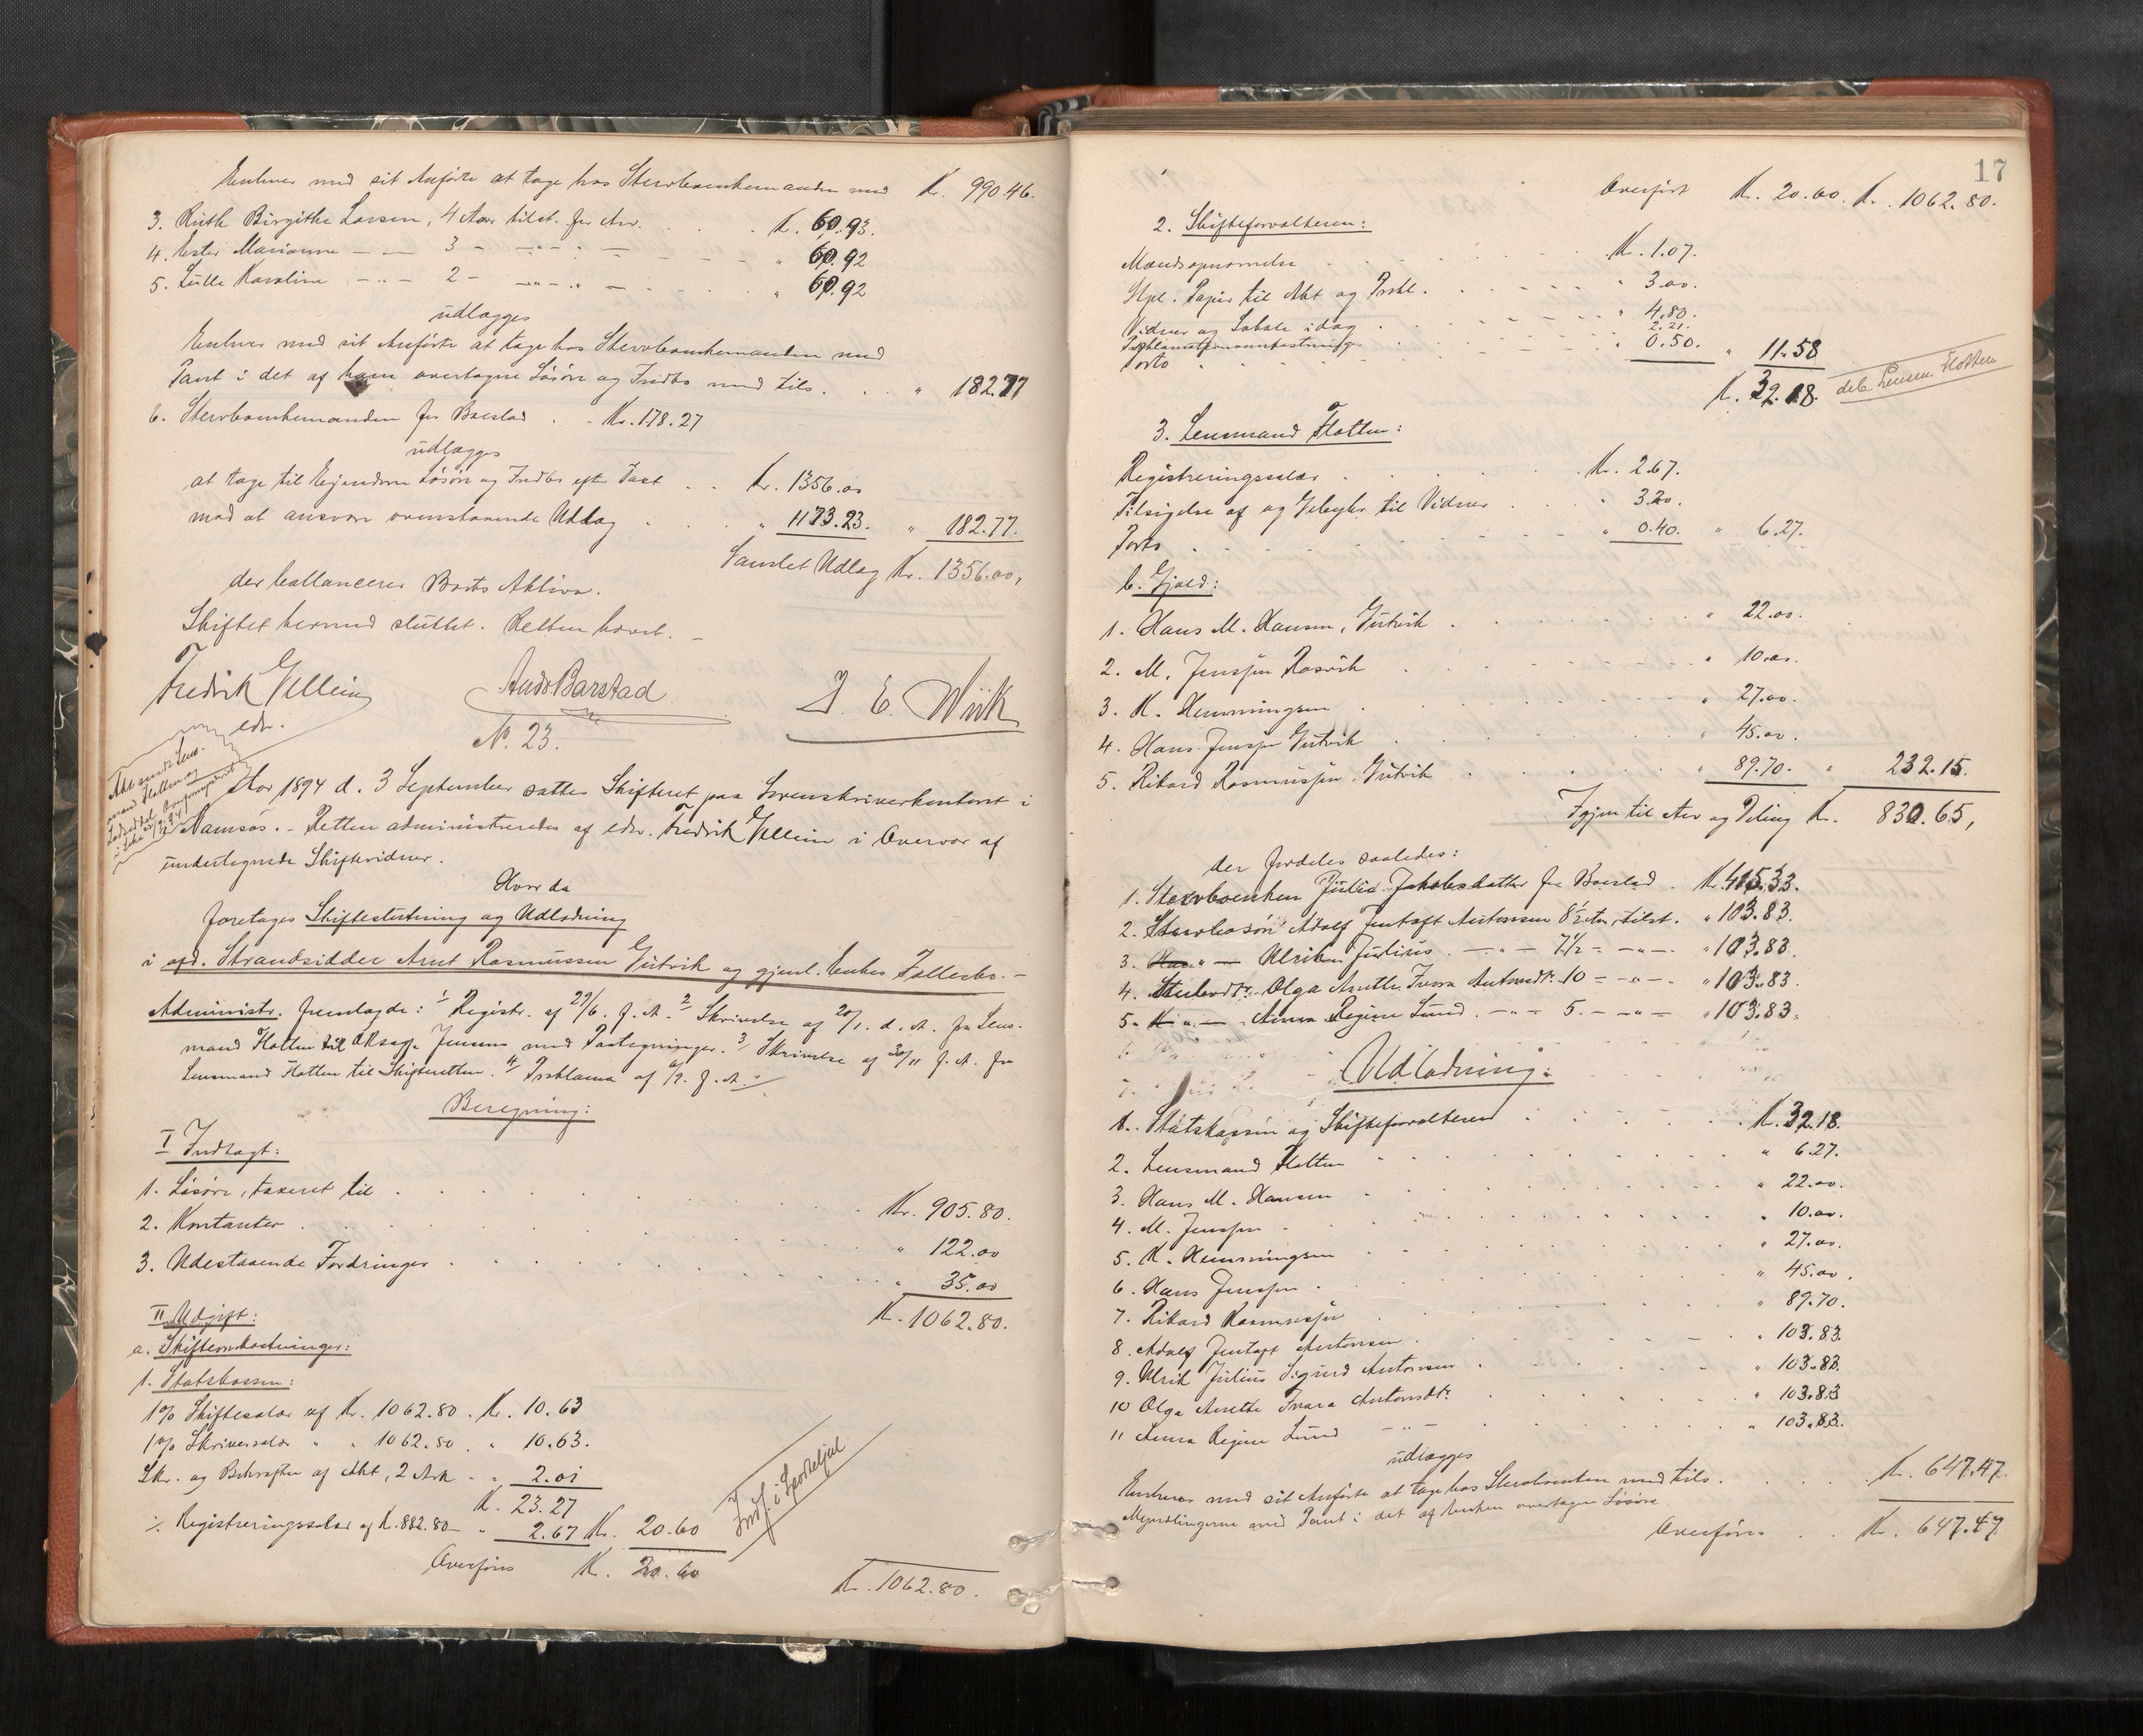 Enhver med sit Anførte at tage hos Stervboenkemanden med Kr. 990.46.
3. Ruth Birgithe Larsen, 4 Aar tilst. for Arv. Kr. 60.93.
4. Ester Marianne — 3 - — " — " 60.92
5. Lulle Karoline — " — 2 - — " — " — " 60.92
udlægges
Enhver med sit Anførte at tage hos Stervboenkemanden med
Pant i det af ham overtagne Løsøre og Indbo med tils. " 182.77
6. Stervboenkemanden for Boeslod Kr. 178.27
udlægges
at tage til Ejendom Løsøre og Indbo efter Taxt Kr. 1356.00
mod at ansvare ovenstaaende Udlæg " 1173.23. " 182.77.
Samlet Udlæg Kr. 1356.00,
der ballancerer Boets Aktiva.
Skiftet hermed sluttet. Retten hævet. —
Fredrik Vellein
edr.
Ands Barstad
J. E. Wiik
No. 23.
Aar 1894 d. 3 September sattes Skifteret paa Sorenskriverkontoret i
Namsos. - Retten administreredes af edr. Fredrik Vellein i Overvær af
undertegnede Skiftevidner.
Hvor da
foretoges Skifteslutning og Udlodning
i afd. Strandsidder Arnt Rasmussen Gutvik og gjenl. Enkes Fællesbo. -
Administr. fremlagde: 1/ Registr. af 29/6. f. A. 2/ Skrivelse af 20/1. d. A. fra Lens-
mand Flotten til Aksage Jensen med Paategninger. 3/ Skrivelse af 30/11 f. A. fra
Lensmand Flotten til Skifteretten. 4/ Proklama af 6/9. f. A. -
Beregning:
I Indtægt:
1. Løsøre, taxeret til Kr. 905.80.
2. Kontanter " 122.00
3. Udestaaende Fordringer " 35.00
Kr. 1062.80.
II Udgift:
a. Skifteomkostninger:
1. Statskassen:
1% Skiftesalær af Kr. 1062.80. Kr. 10.63
1% Skriversalær " " 1062.80. " 10.63.
Skr. og Bekræftn af Akt, 2 Ark " 2.01
K. 23.27
÷ Registreringssalær af K. 882.80 — " 2.67 Kr. 20.60
Indf. i Sporteljnl
Overføres Kr. 20.60 Kr. 1062.80.
17
Overført Kr. 20.60. Kr. 1062.80.
2. Skifteforvalteren:
Mændsopnævnelse Kr. 1.07.
Stpl. Papir til Akt og Prokl. " 3.00.
Vidner og Lokale idag " 4.80.
Proklamationsomkostninger 2.21.
Porto " 0.50. " 11.58
K. 32.18 deb. Lensm. Flotten
3. Lensmand Flotten:
Registreringssalær Kr. 2.67.
Tilsigelse af og Gebyhr til Vidner " 3.20.
Porto " 0.40. " 6.27.
b. Gjæld:
1. Hans M. Hansen, Gutvik " 22.00.
2. M. Jenssen Rosvik " 10.00.
3. K. Hemmingsen " 27.00.
4. Hans Jenssen Gutvik " 45.00.
5. Rikard Rasmussen, Gutvik " 89.70. " 232.15.
Igjen til Arv og Deling Kr. 830.65,
der fordeles saaledes:
1. Stervboenken Julie Jakobsdatter for Boeslod Kr. 415.33.
2. Stervbosøn Adolf Jentoft Antonsen 8½ Aar, tilst. " 103.83.
3. " — Ulrik Julius — " — 7½ — " — " 103.83.
4. Stervbodtr. Olga Anette Ivara Antonsdtr. 10 — " — " 103.83.
5. " — Anna Regine Lund — " — 5. — " — " 103.83.
Udlodning:
1. Statskassen og Skifteforvalteren Kr. 32.18.
2. Lensmand Flotten " 6.27.
3. Hans M. Hansen " 22.00.
4. M. Jenssen " 10.00.
5. K. Hemmingsen " 27.00.
6. Hans Jenssen " 45.00.
7. Rikard Rasmussen " 89.70.
8. Adolf Jentoft Antonsen " 103.83.
9. Ulrik Julius Sigurd Antonsen " 103.83.
10 Olga Anette Ivara Antonsdtr. " 103.83
11 Anna Regine Lund — " — " 103.83.
udlægges
Enhver med sit Anførte at tage hos Stervboenken med tils. Kr. 647.47.
Myndlingerne med Pant i det af Enken overtagne Løsøre
Overføres Kr. 647.47